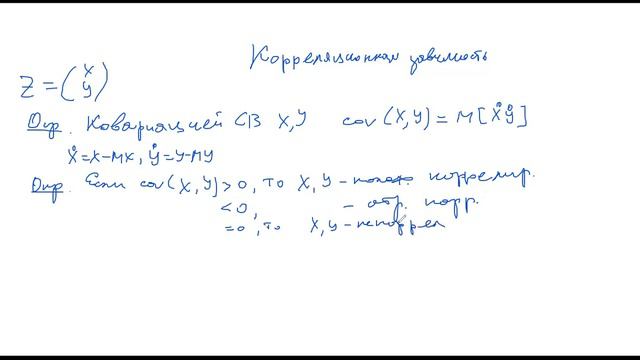 Корреляционная зависимость
Z = (X Y)
Опр. Ковариацией СВ X, Y cov(X, Y) = M[X̊Y̊]
X̊ = X - MX, Y̊ = Y - MY
Опр. Если cov(X, Y) > 0, то X, Y - полож. коррелир.
< 0, - отр. корр.
= 0, то X, Y - некоррел